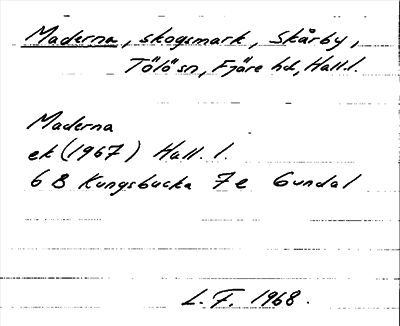 Maderna, skogsmark, Skårby,
Tölö sn, Fjäre hd, Hall. l.
Maderna
ek (1967) Hall. l.
6 B Kungsbacka 7 e Gundal
L. F. 1968.